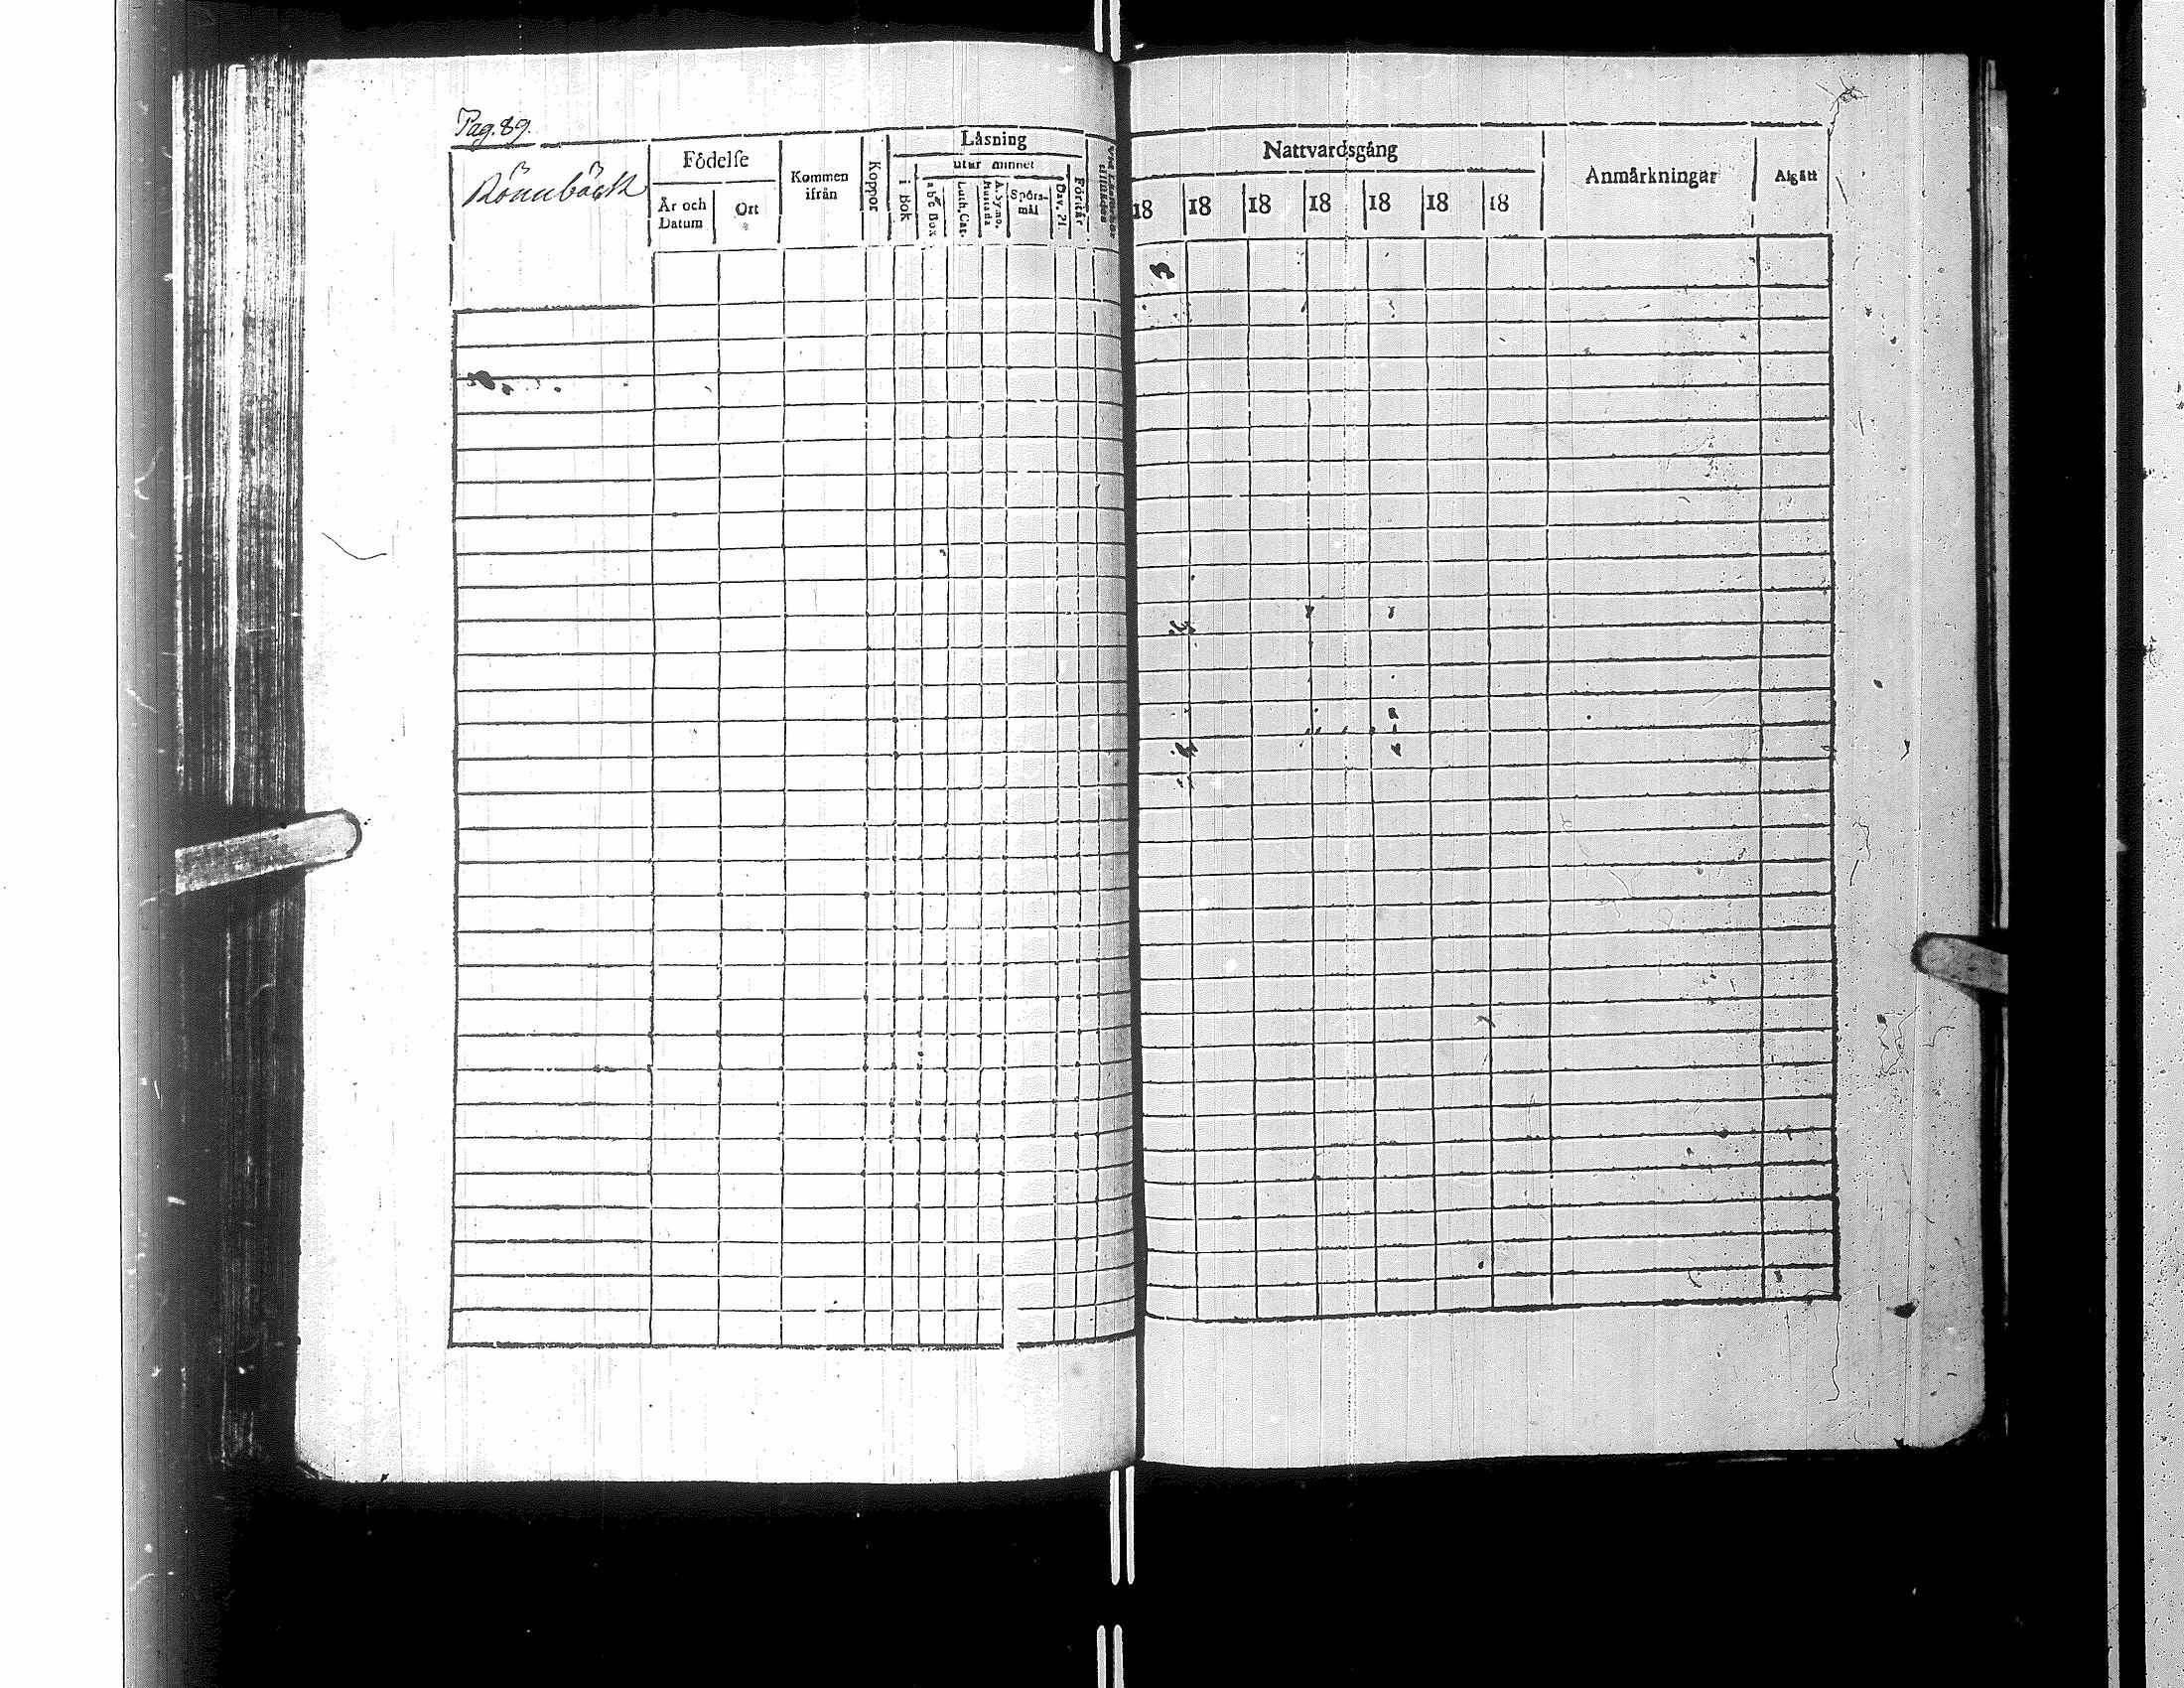 Pag. 89.
Rönnbäck
Födelse
År och Datum
Ort
Kommen ifrån
Koppor
Läsning
i Bok
utur minnet
abc Bok
Luth. Cat.
Spörs-mål
Dav. Ps.
Förstår
Nattvardsgång
18 18 18 18 18 18 18
Anmärkningar
Afgått